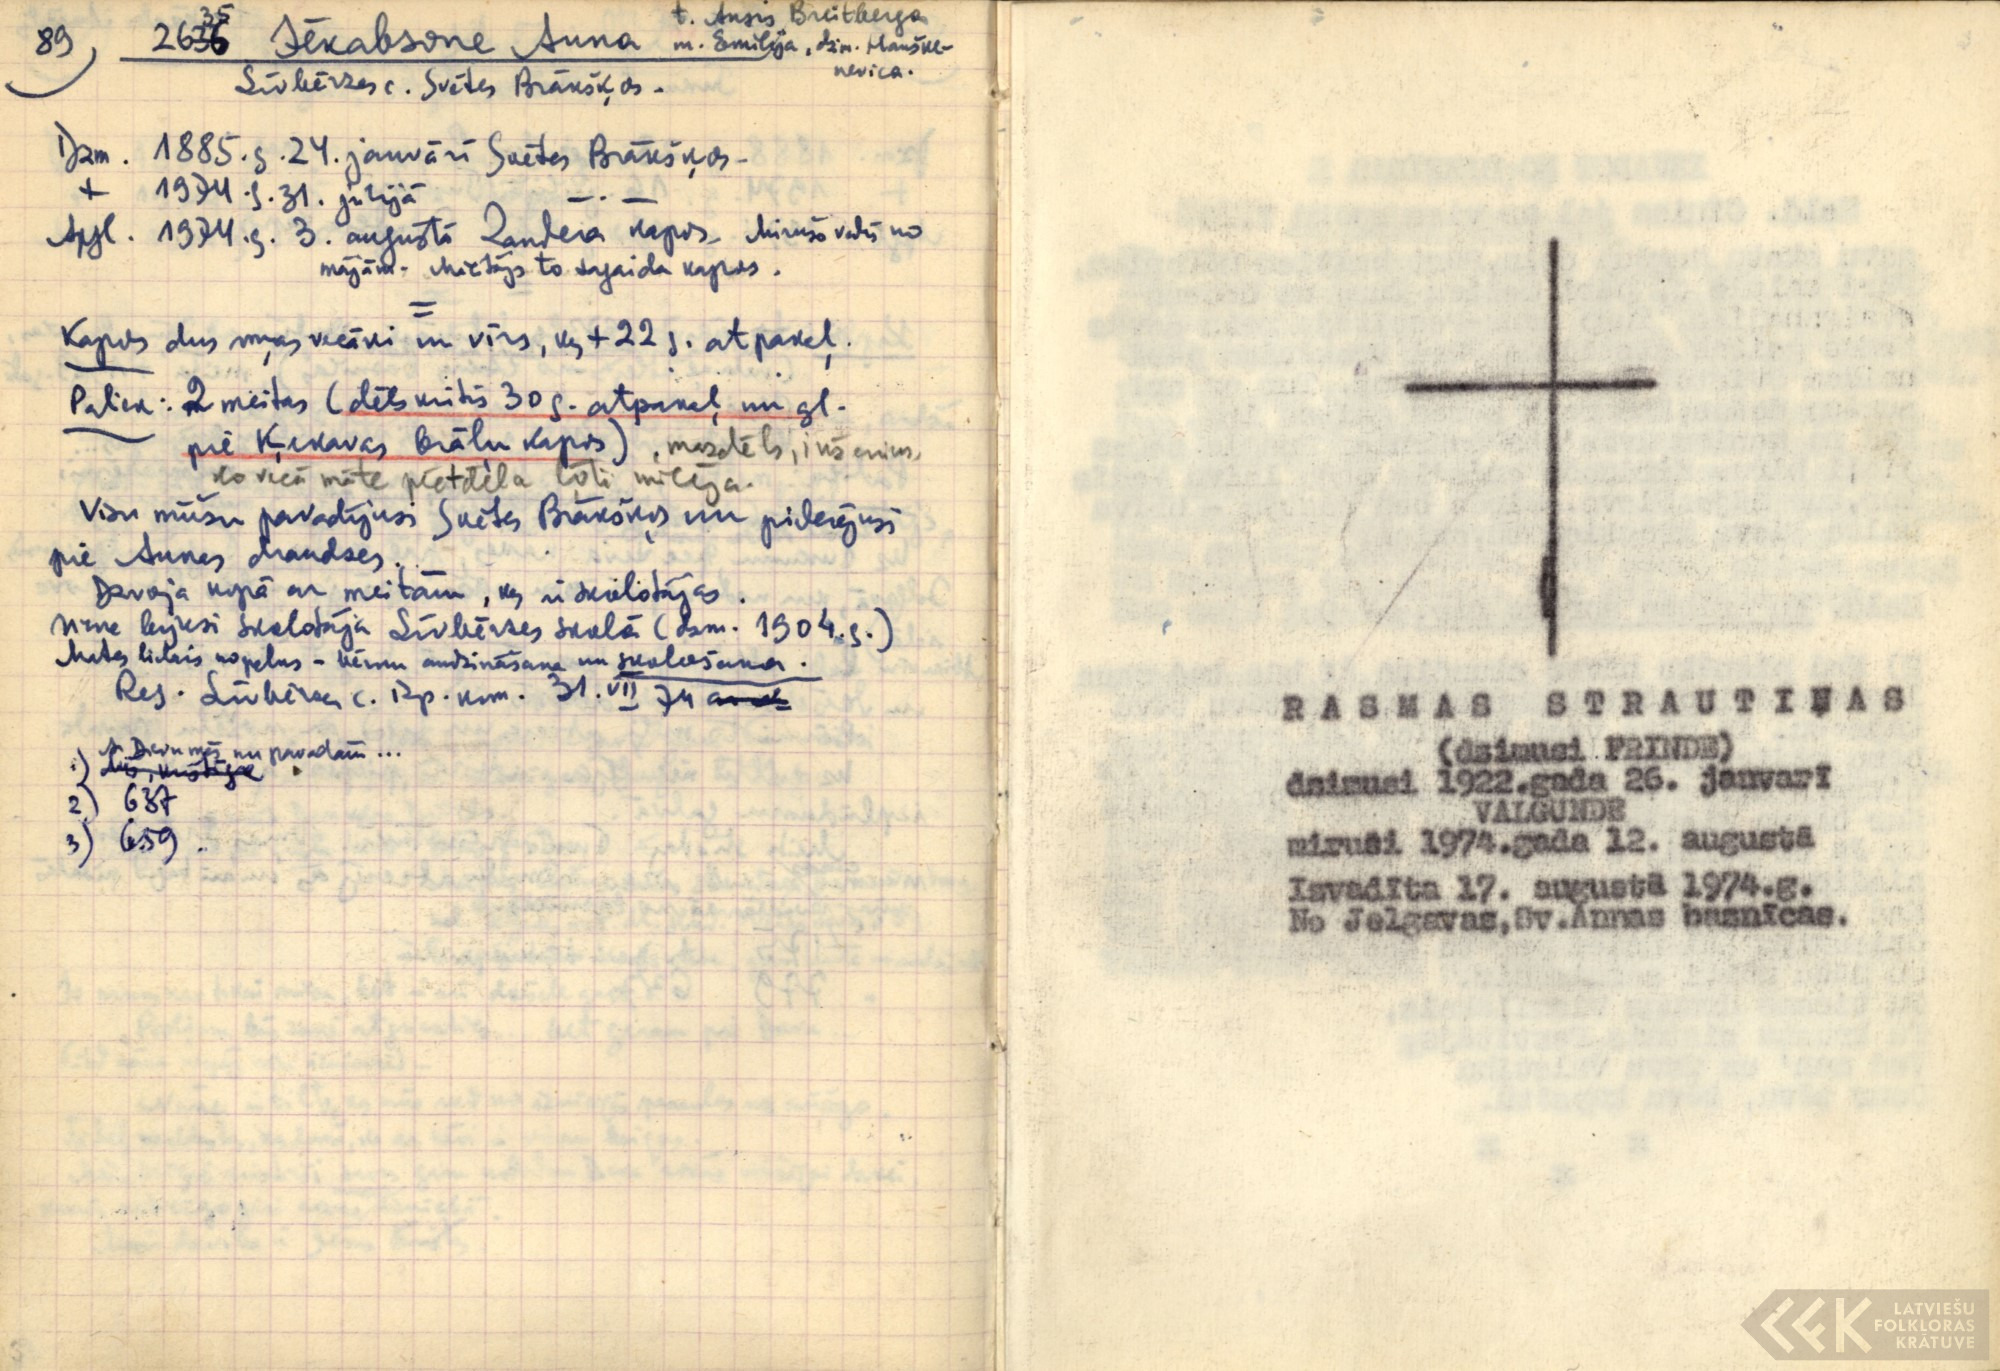 89) 2635 Jēkabsone Anna
t. Ansis Breitbergs
m. Emilija, dzim.
Līvbērzes c. Svētes Brākšķos.
Dzm. 1885.g.24. janvārī Svētes Brākšķos
+ 1974.g.31. jūlijā — · —
Apgl. 1974.g. 3. augustā Zandera kapos. Mirušo vadīs no
mājām - Mācītājs to sagaida kapos.
=
Kapos dus viņas vecāki un vīrs, kas + 22 g. atpakaļ.
Paliek: 2 meitas (dēls kritis 30 g. atpakaļ un gl.
pie Ķekavas brāļu kapos), mazdēls, inženieris,
ko vecā māte ļoti mīlēja.
Visu mūžu pavadījusi Svētes Brākšķos un piderējusi
pie Annas draudzes.
Dzīvoja kopā ar meitām, kas ir skolotājas.
bijusi skolotāja Līvbērzes skolā (dzm. 1904.g.)
Mātes lielais nopelns - bērnu audzināšana un skološana.
Reģ. Līvbērzes c. izp. kom. 31.VII 74
1) Ar Dievu mēs nu pavadam ...
2) 637
3) 659.
RASMAS STRAUTIŅAS
(dzimusi FRINDE)
dzimusi 1922.gada 26. janvarī
VALGUNDE
mirusi 1974.gada 12. augustā
Izvadīta 17. augustā 1974.g.
No Jelgavas,Sv.Annas baznīcas.
LATVIEŠU
FOLKLORAS
KRĀTUVE